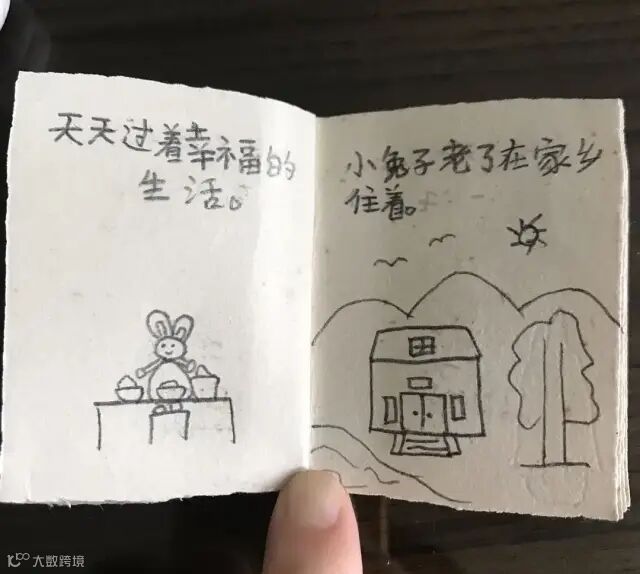 天天过着幸福的
生活。
小兔子老了在家乡
住着。
大数跨境